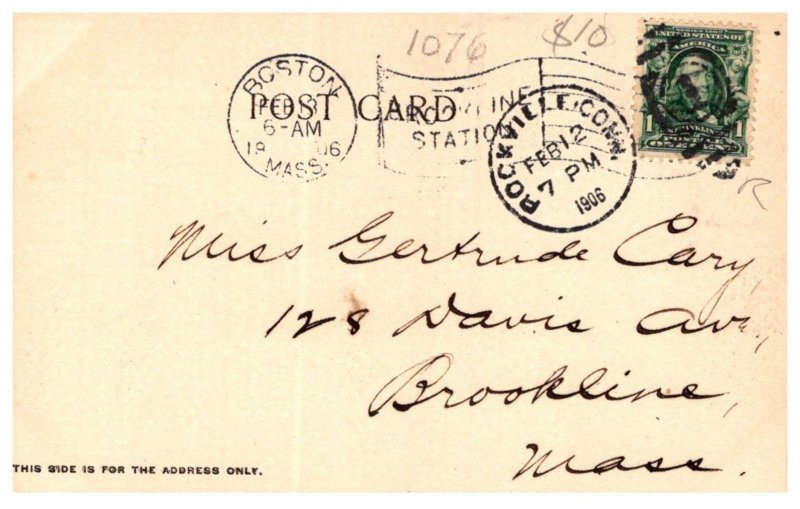 1076 $10
BOSTON
FEB 13
6-AM
19 06
MASS.
POST CARD
BROOKLINE
STATION
ROCKVILLE, CONN.
FEB 12
7 PM
1906
SERIES 1902
UNITED STATES OF
AMERICA
FRANKLIN
1 1
R
Miss Gertrude Cary,
128 Davis Ave,
Brookline,
Mass.
THIS SIDE IS FOR THE ADDRESS ONLY.